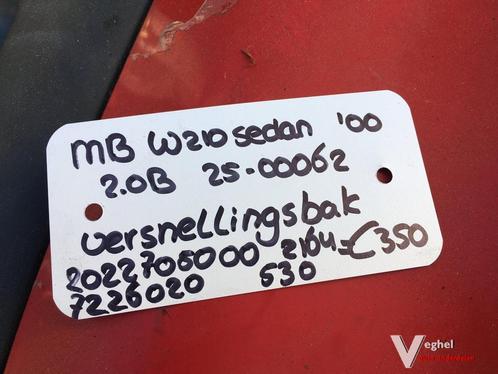 MB W210 sedan '00
2.0B 25-00062
versnellingsbak
2022705000 2164= €350
7226020 530
Veghel